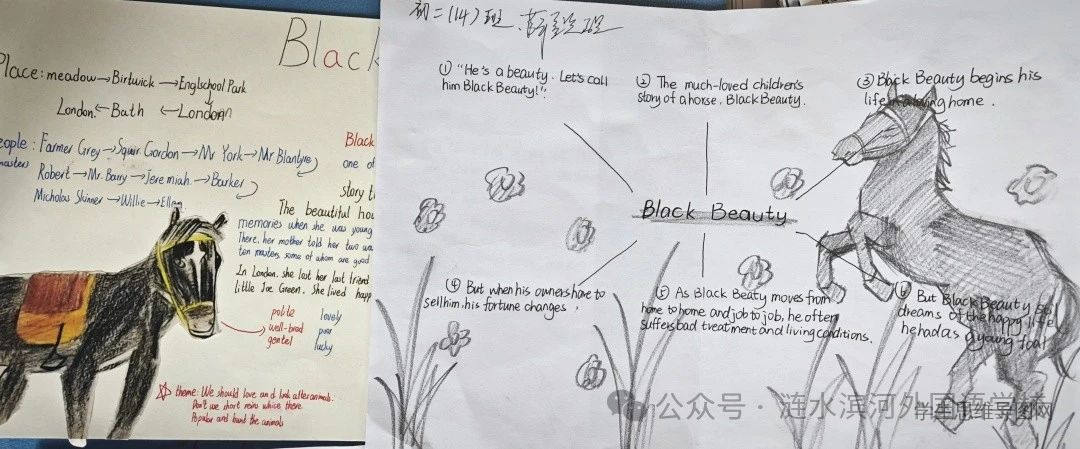 Black
Place: meadow→Birtwick→Englschool Park
London←Bath←London
eople: Farmer Grey→Squir Gordon→Mr York→Mr Blantyre
masters
Robert→Mr. Barry→Jeremiah→Barker
Micholas Skinner→Willie→Ellen
Black
one of
story t
The beautiful hou
memories when she was young
There, her mother told her two wa
ten masters, some of whom are good
In London, she lost her last friend
little Joe Green. She lived happ
polite lovely
well-bred poor
gentel lucky
theme: We should love and look after animals.
Don't we short reins which there
Popular and hund the animals
初二(14)班
① "He's a beauty. Let's call
him Black Beauty!".
② The much-loved children's
story of a horse, Black Beauty.
③ Black Beauty begins his
life in a loving home.
Black Beauty
④ But when his owners have to
sell him, his fortune changes.
⑤ As Black Beaty moves from
home to home and job to job, he often
suffers bad treatment and living conditions.
⑥ But Black Beauty
dreams of the happy life
he had as a young foal
公众号·涟水滨河外国语学校
学生思维导图网